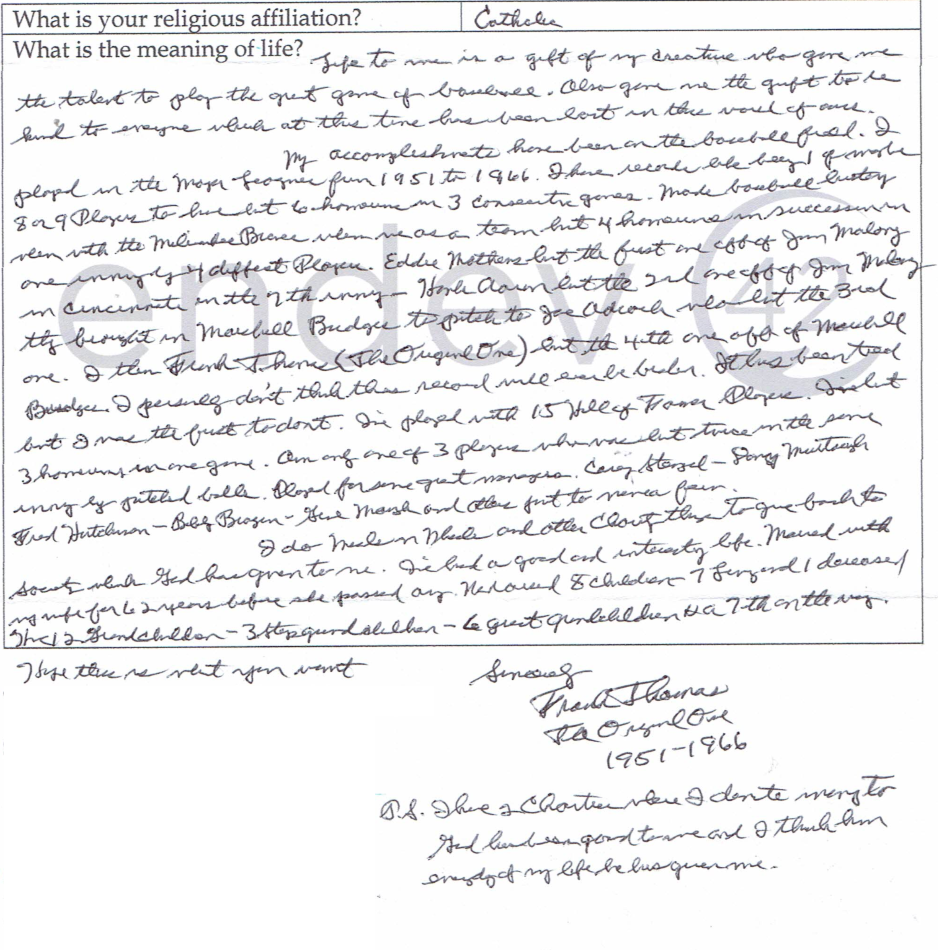 What is your religious affiliation? Catholic
What is the meaning of life? Life to me is a gift of my creature who gave me
the talent to play the great game of baseball. Also gave me the gift to be
kind to everyone which at this time has been lost in this world of ours.
My accomplishments have been on the baseball field. I
played in the Major Leagues from 1951 to 1966. I have records like being 1 of maybe
8 or 9 Players to have hit 6 homeruns in 3 consecutive games. Made baseball history
when with the Milwaukee Braves when we as a team hit 4 homeruns in succession in
one inning by 4 different Players. Eddie Mathews hit the first one off of Jim Maloney
in Cincinnati in the 7th inning - Hank Aaron hit the 2nd one off of Jim Maloney
they brought in Marshall Bridges to pitch to Joe Adcock who hit the 3rd
one. I then Frank J. Thomas (The Original One) hit the 4th one off of Marshall
Bridges. I personally don't think this record will ever be broken. It has been tied
but I was the first to do it. I've played with 15 Hall of Famer Players. I've hit
3 homeruns in one game. Am only one of 3 players who was hit twice in the same
inning by pitched balls. Played for some great managers. Casey Stengel - Danny Murtaugh
Fred Hutchinson - Bobby Bragan - Gene Mauch and others just to name a few.
I do Meals on Wheels and other Charity things to give back to
society which God has given to me. I've had a good and interesting life. Married with
my wife for 62 years before she passed away. We had 8 children - 7 living and 1 deceased
I have 12 Grandchildren - 3 Step grandchildren - 6 great grandchildren + a 7th on the way.
I hope this is what you want
Sincerely
Frank Thomas
The Original One
1951-1966
P.S. I have 2 Charities where I donate money to
God has been good to me and I thank him
everyday of my life he has given me.
endev 42